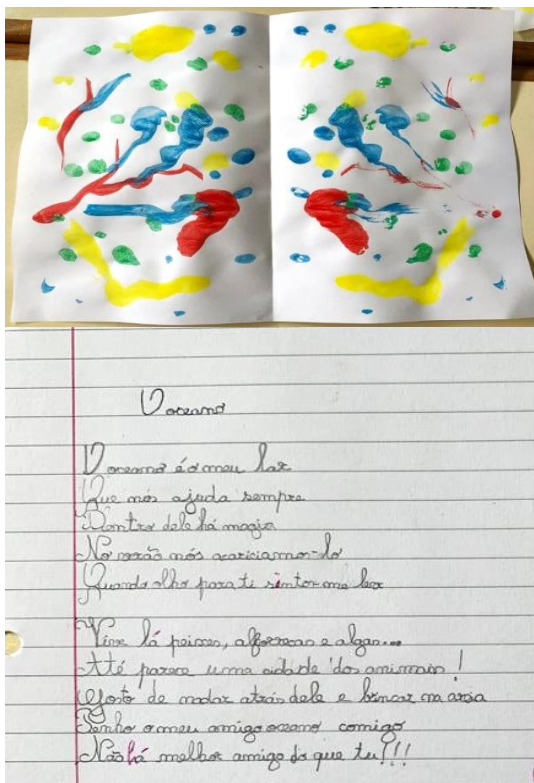 O oceano
O oceano é o meu lar
Que nós ajuda sempre
Dentro dele há magia
No verão nós acariciamos-lo
Quando olho para ti sintor-me leve
Vive lá peixes, alforrecas e algas...
Até parece uma cidade dos animais!
Gosto de nadar atrás dele e brincar na areia
Tenho o meu amigo oceano comigo
Não há melhor amigo do que tu!!!